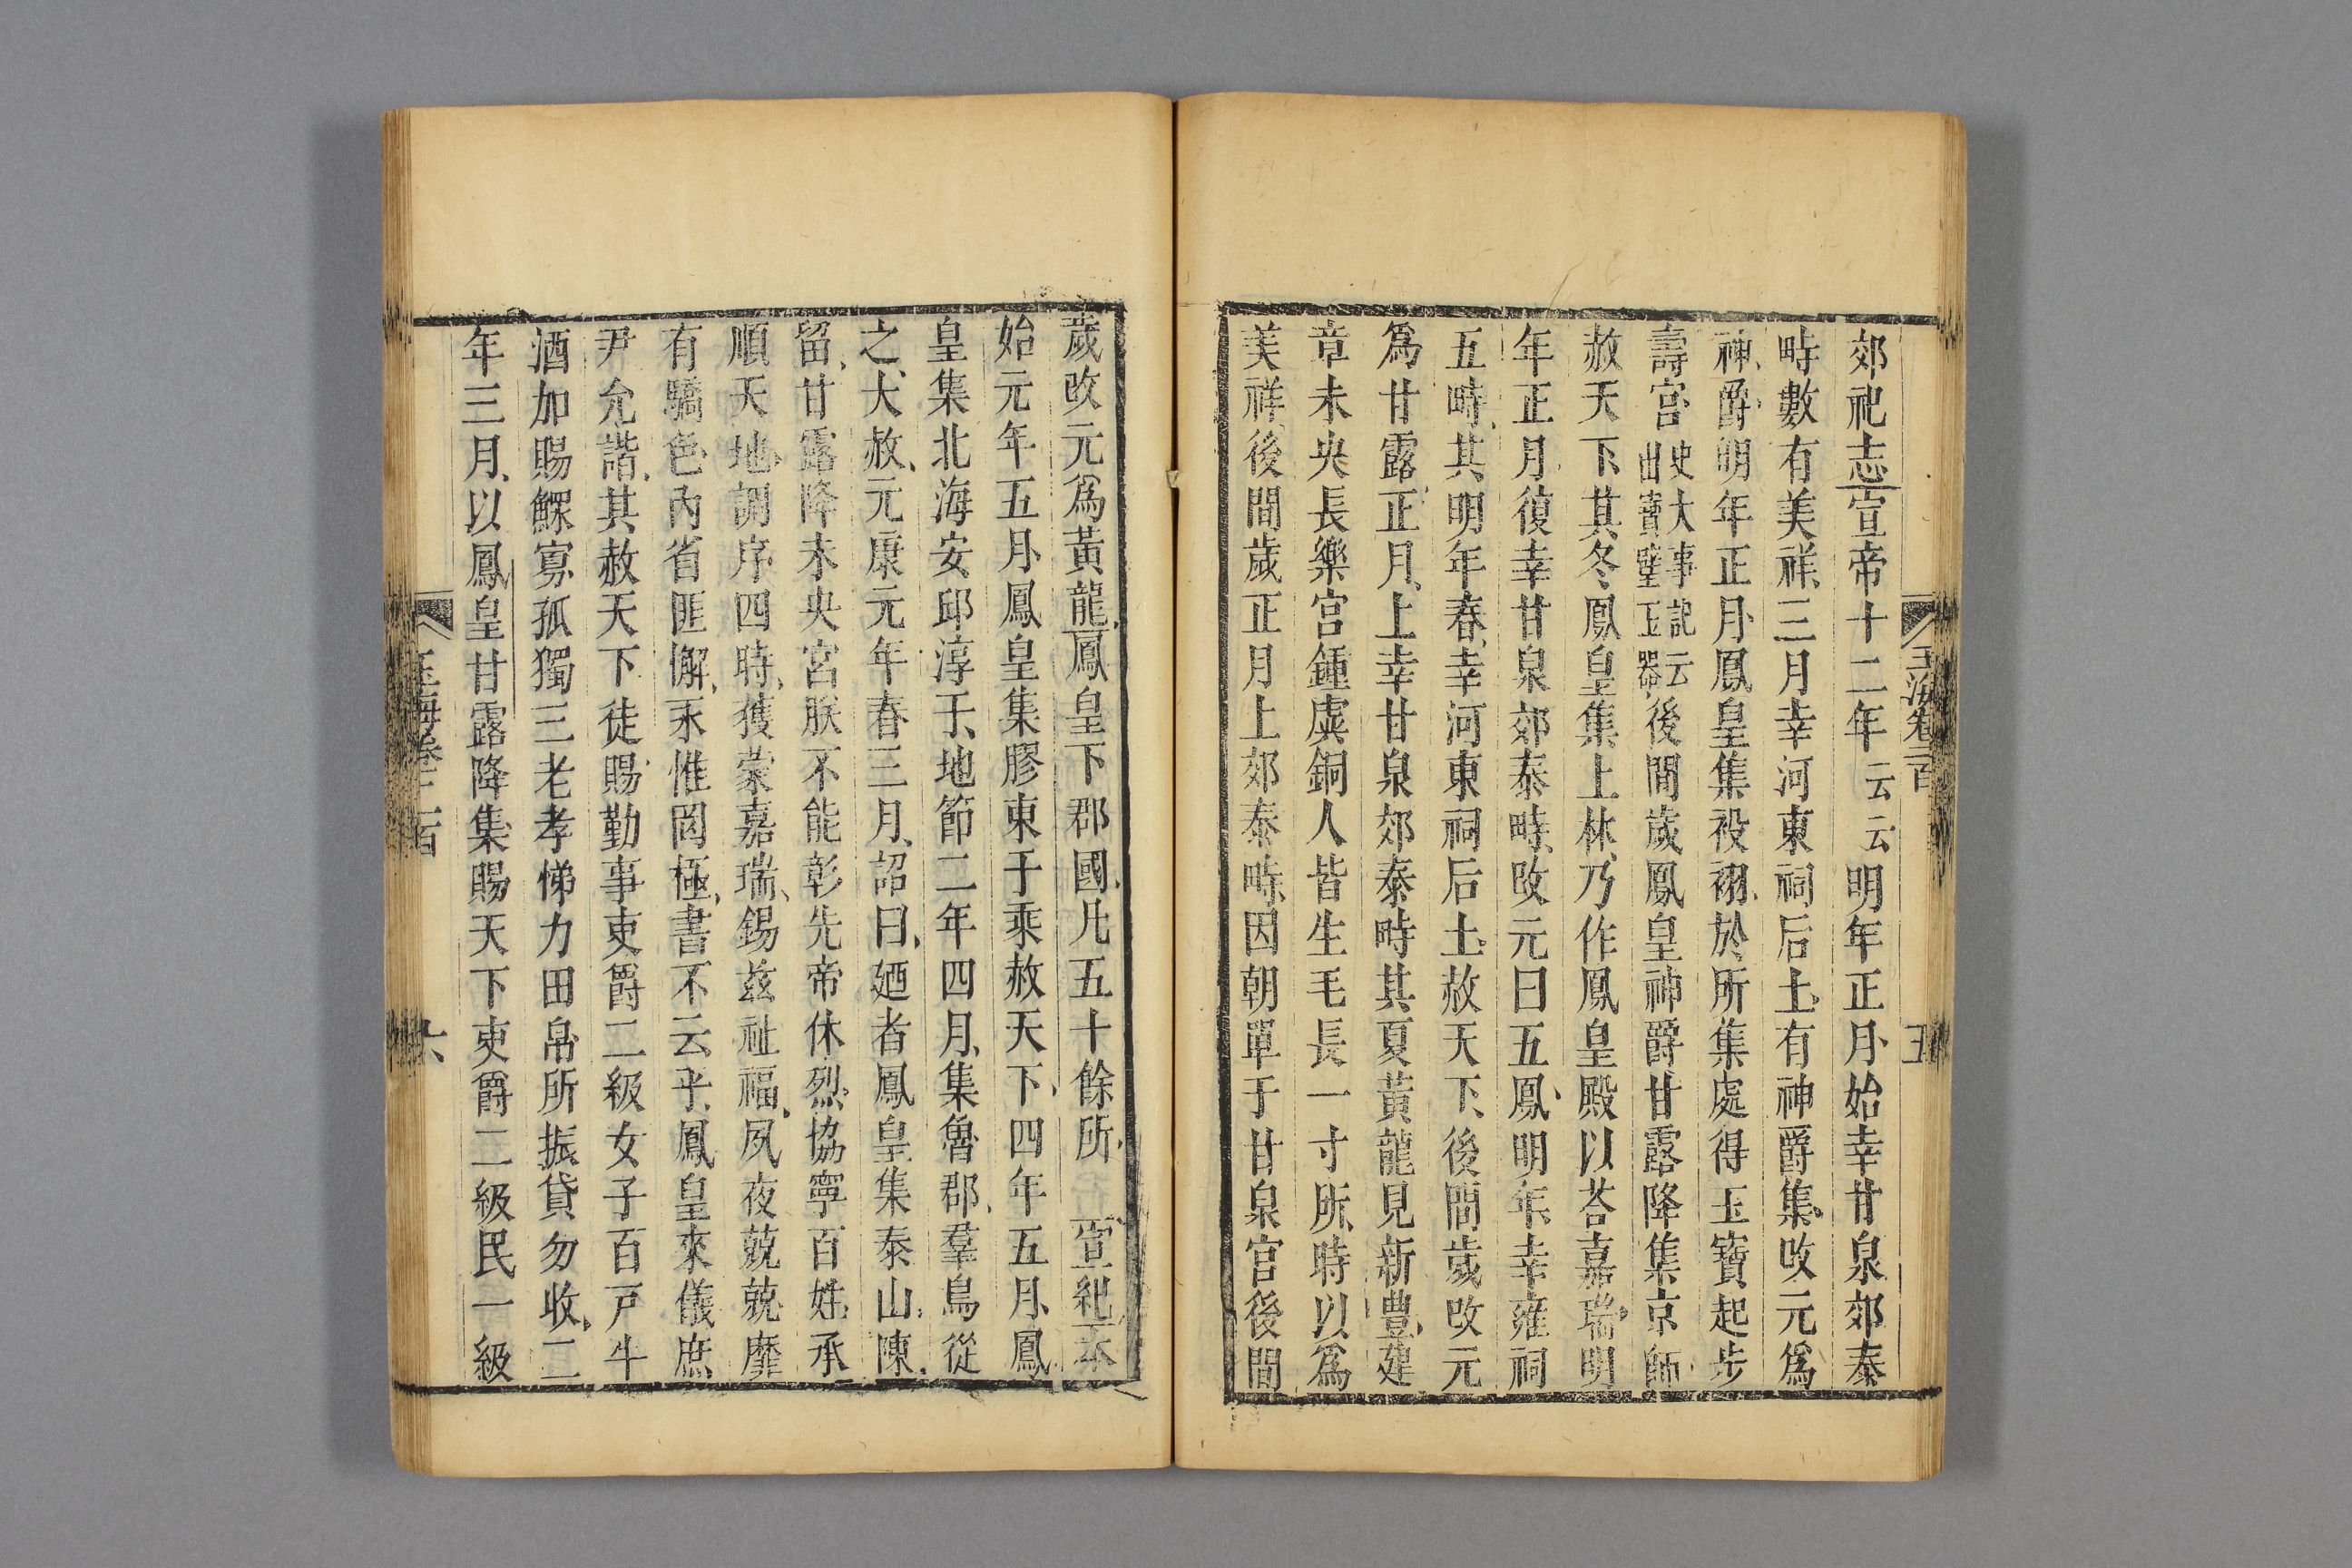 玉海卷二百
五
郊祀志宣帝十二年云云明年正月始幸甘泉郊泰
畤數有美祥三月幸河東祠后土有神爵集改元爲
神爵明年正月鳳皇集祋祤於所集處得玉寶起步
壽宮史大事記云出寶璧玉器後間歲鳳皇神爵甘露降集京師
赦天下其冬鳳皇集上林乃作鳳皇殿以荅嘉瑞明
年正月復幸甘泉郊泰畤改元曰五鳳明年幸雍祠
五畤其明年春幸河東祠后土赦天下後間歲改元
爲甘露正月上幸甘泉郊泰畤其夏黃龍見新豊建
章未央長樂宮鍾虡銅人皆生毛長一寸所時以爲
美祥後間歲正月上郊泰畤因朝單于甘泉宮後間
歲改元爲黃龍鳳皇下郡國凡五十餘所 宣紀本
始元年五月鳳皇集膠東千乘赦天下四年五月鳳
皇集北海安邱淳于地節二年四月集魯郡羣鳥從
之大赦元康元年春三月詔曰廼者鳳皇集泰山陳
留甘露降未央宮朕不能彰先帝休烈協寧百姓承
順天地調序四時獲蒙嘉瑞錫兹祉福夙夜兢兢靡
有驕色內省匪懈永惟罔極書不云乎鳳皇來儀庶
尹允諧其赦天下徒賜勤事吏爵二級女子百戸牛
酒加賜鰥寡孤獨三老孝悌力田帛所振貸勿收二
年三月以鳳皇甘露降集賜天下吏爵二級民一級
玉海卷二百
六